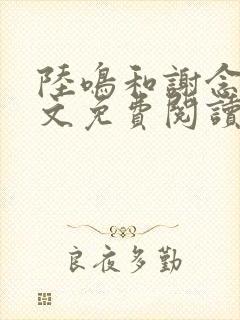 陸鳴和謝念
文免費閱讀
良夜多勤